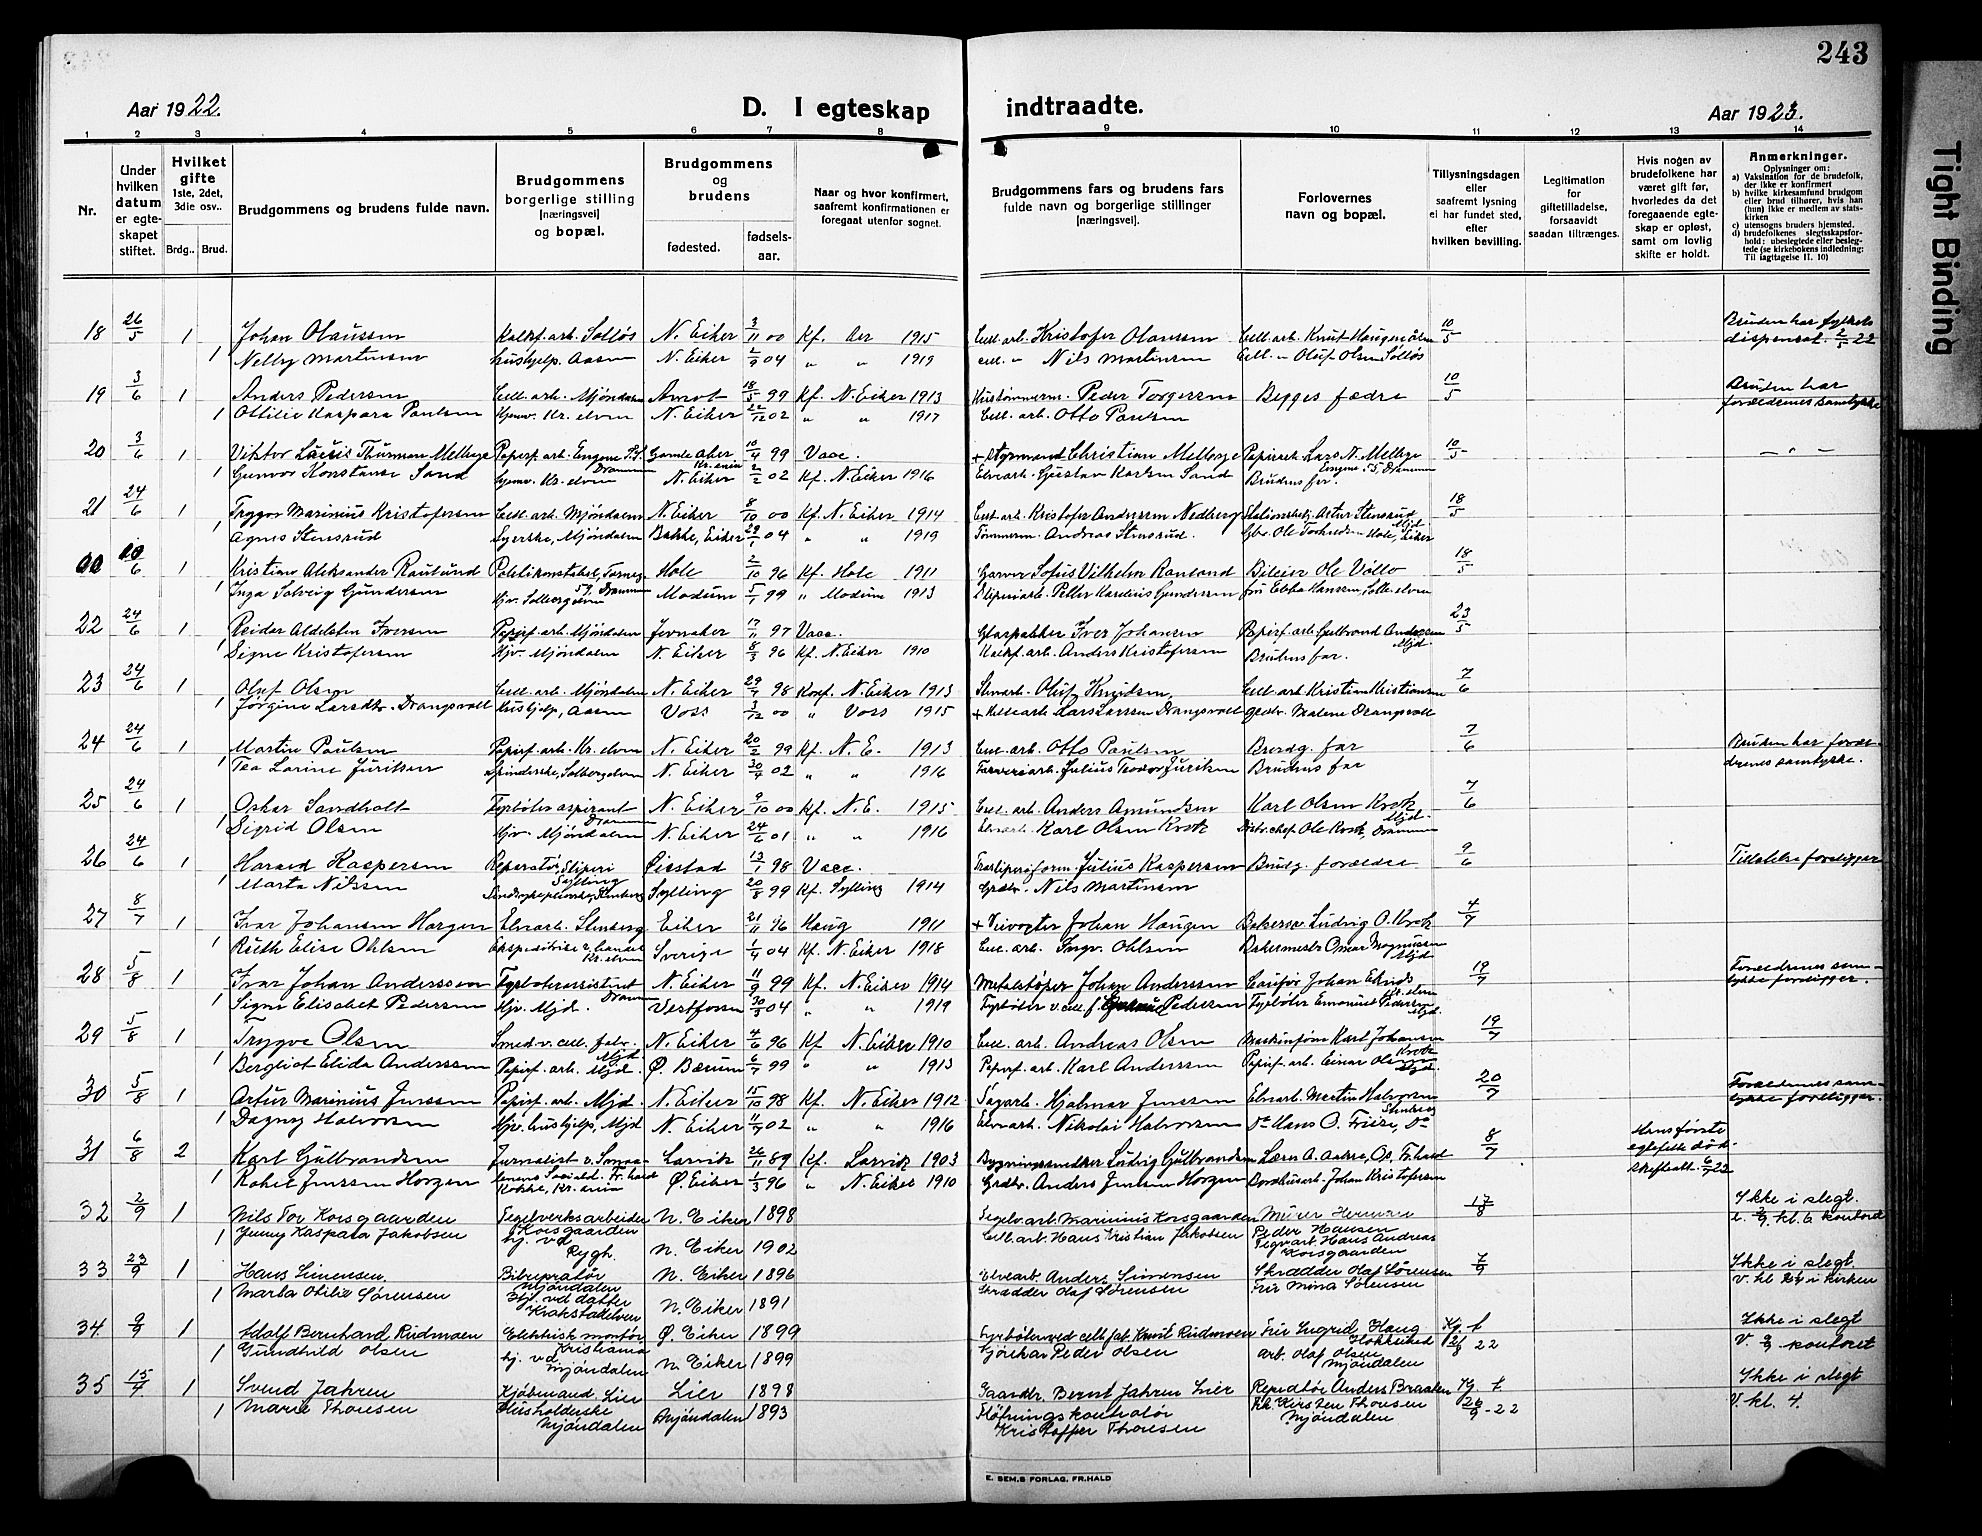 243
Aar 1922.
D. I egteskap indtraadte.
Aar 1923.
1 2 3 4 5 6 7 8 9 10 11 12 13 14
Nr.
Under hvilken datum er egteskapet stiftet.
Hvilket gifte 1ste, 2det, 3die osv..
Brdg.. Brud.
Brudgommens og brudens fulde navn.
Brudgommens borgerlige stilling [næringsvei] og bopæl.
Brudgommens og brudens
fødested. fødsels-aar.
Naar og hvor konfirmert, saafremt konfirmationen er foregaat utenfor sognet.
Brudgommens fars og brudens fars fulde navn og borgerlige stillinger [næringsvei].
Forlovernes navn og bopæl.
Tillysningsdagen eller saafremt lysning ei har fundet sted, efter hvilken bevilling.
Legitimation for giftetilladelse, forsaavidt saadan tiltrænges.
Hvis nogen av brudefolkene har været gift før, hvorledes da det foregaaende egteskap er opløst, samt om lovlig skifte er holdt.
Anmerkninger.
Oplysninger om:
a) Vaksination for de brudefolk, der ikke er konfirmert
b) hvilke kirkesamfund brudgom eller brud tilhører, hvis han (hun) ikke er medlem av statskirken
c) utensogns bruders hjemsted.
d) brudefolkenes slegtsskapsforhold: ubeslegtede eller beslegtede (se kirkebokens indledning: Til Iagttagelse II. 10)
18 26/5 1 Johan Olaussen Kalkf. arb. Solløs N. Eiker 3/11 00 Kf. 1915 Cell. arb. Kristofer Olaussen 10/5 Bruden har fylkets
1 Nelly Martinsen Hushjelp. Aasen N. Eiker 2/9 04 " " 1919 Cell. " Nils Martinsen Cell. " Oluf Olsen Solløs dispensat. 2/5 22
19 3/6 1 Anders Pedersen Cell. arb. Mjøndalen Amot 18/5 99 Kf. N. Eiker 1913 Peder Torgersen Begges fædre 10/5 Bruden har
1 Ottilie Kaspara Paulsen Hjemv. Kr. elven N. Eiker 22/12 02 " " 1917 Cell. arb. Otto Paulsen forældrenes samtykke
20 3/6 1 Viktor Thurman Melbye Papirf. arb. Engene Drammen 10/4 99 Vacc. + Christian Melbye Papirarb. N. Melbye Engene 55, Drammen 10/5 — " —
1 Gunvor Konstanse Sand Hjemv. Kr. elven N. Eiker 2/2 02 Kf. N. Eiker 1916 Elvearb. Gustav Karlsen Sand Brudens far.
21 24/6 1 Trygve Marinius Kristofersen Cell. arb. Mjøndalen N. Eiker 8/10 00 Kf. N. Eiker 1914 Cell. arb. Kristofer Andersen Nedberg Artur Stensrud Mjd. 18/5
1 Agnes Stensrud Syerske, Mjøndalen Bakke, Eiker 29/1 04 " " 1919 Tømmerm. Andreas Stensrud. Gbr. Ole
1 Kristian Aleksander Rausund Politikonstabel, Drammen Hole 2/10 96 Kf. Hole 1911 Garver Sofus Vilhelm 18/5
1 Inga Solveig Gundersen Hjv. Solbergelven Modum 5/1 99 " Modum 1913 Sliperiarb. Petter Gundersen fru Ebba Hansen, Solb. elven
22 24/6 1 Reidar Aldelsten Iversen Papirf. arb. Mjøndalen Jevnaker 17/11 97 Vacc. Glaspakker Iver Johansen Papirf. arb. Gulbrand Andersen Mjd. 23/5
1 Signe Kristofersen Hjv. Mjøndalen N. Eiker 8/3 96 Kf. N. Eiker 1910 Anders Kristofersen Brudens far.
23 24/6 1 Oluf Olsen Cell. arb. Mjøndalen N. Eiker 29/7 98 Konf. N. Eiker 1913 Stenarb. Oluf Knudsen, Cell. arb. Kristian Kristiansen 7/6
1 Jørgine Larsdtr. Drangsvoll Hushjelp, Aasen Voss 3/12 00 " Voss 1915 + Lars Larsen Drangsvoll Malene Drangsvoll
24 24/6 1 Martin Paulsen Papirf. arb. Kr. elven N. Eiker 20/2 99 Kf. N. E. 1913 Cell. arb. Otto Paulsen Brudg. far 7/6 Bruden har foræl-
1 Tea Larine Juriksen Solbergelven N. Eiker 30/4 02 " " 1916 Farveriarb. Julius Teodor Juriksen Brudens far drenes samtykke.
25 24/6 1 Oskar Sandholt Fyrbøteraspirant Drammen N. Eiker 9/10 00 Kf. N. E. 1915 Cell. arb. Anders Amundsen Karl Olsen Krok, Mjd. 7/6
1 Sigrid Olsen Hjv. Mjøndalen N. Eiker 24/6 01 " " 1916 Elvearb. Karl Olsen Krok Ole Krok, Drammen
26 24/6 1 Harald Kaspersen Reparatør, Sliperi Øiestad 13/1 98 Vacc. Træsliperiform. Julius Kaspersen Brudg. forældre 9/6 Tilladelse foreligger
1 Marta Nilssen Sylling 20/8 99 Kf. Sylling 1914 Grdbr. Nils Martinsen
27 8/7 1 Ivar Johansen Horgen Elvearb. Stenberg Eiker 21/11 96 Haug 1911 + Johan Haugen Bakersv. Ludvig O. Krok 4/7
1 Ruth Elise Ohlsen Kr. elven Sverige 1/4 04 Kf. N. Eiker 1918 Cell. arb. Ingv. Ohlsen Bakermester Omar Magnussen Mjd.
28 5/8 1 Ivar Johan Anderssen Fyrbøterassistent Drammen N. Eiker 11/9 99 Kf. N. Eiker 1914 Metalstøper Johan Anderssen Johan 19/7 Forældrenes sam-
1 Signe Elisabet Pedersen Hjv. Mjd. Vestfossen 30/3 04 " " 1919 Fyrbøter v. cell. f. Pedersen Fyrbøter Emanuel Pedersen Mjd. tykke foreligger.
29 5/8 1 Trygve Olsen Smed v. cell. fabr. Mjd. N. Eiker 4/6 96 Kf N. Eiker 1910 Cell. arb. Andreas Olsen Maskinform. Karl Johansen Krok 19/7
1 Bergliot Elida Anderssen Papirf. arb. Mjd. Ø. Bærum 6/7 99 " " 1913 Papirf. arb. Karl Anderssen Papirf. arb. Einar Olsen Mjd.
30 5/8 1 Artur Marinius Jenssen Papirf. arb. Mjd. N. Eiker 15/10 98 Kf. N. Eiker 1912 Sagarb. Hjalmar Jenssen Elvearb. Martin Halvorsen Stenberg 20/7 Forældrenes sam-
1 Dagny Halvorsen Hjv. hushjelp, Mjd N. Eiker 11/7 02 " " 1916 Elvearb. Nikolai Halvorsen Do Hans O. Friise, Do tykke foreligger.
31 6/8 2 Karl Gulbrandsen Jurnalist v. Larvik 26/11 89 Kf. Larvik 1903 Bygningssnedker Ludvig Gulbrandsen 8/7 Hans første
1 Jenssen Horgen Kokke, Kr. ania Ø. Eiker 1/3 96 " N. Eiker 1910 Grdbr. Anders Jenssen Horgen Johan Kristofersen egtefelle død. Skifteatt. 6/7 22
32 2/9 1 Nils Tor Korsgaarden Teglverksarbeider Korsgaarden N. Eiker 1898 Teglv. arb. Marinius Korsgaarden Murer Herman 17/8 Ikke i slegt.
1 Jenny Kaspara Jakobsen hj. vd Rygh. N. Eiker 1902 Cell. arb. Hans Kristian Jakobsen Peder Hansen Teglv. arb. Hans Andreas Korsgaarden v. 2/9 kl. 6 kontoret
33 23/9 1 Hans Simensen. Bilrepratør Mjøndalen N. Eiker 1896 Elvearb. Anders Simensen Skrædder Olaf Sørensen 7/9 Ikke i slegt
1 Marta Otilie Sørensen Hj. vd datter Krokstadelven N. Eiker 1891 Skrædder Olaf Sørensen Fru Mina Sørensen V. kl i kirken
34 9/9 1 Adolf Bernhard Rudmoen Elektrisk montør Kristiania Ø. Eiker 1899 Fyrbøter ved cell. fab. Rudmoen Fru Ingrid Haug Hokksund Kg. f. 22 Ikke i slegt
1 Gundhild Olsen hj. vd Mjøndalen N. Eiker 1899 Peder Olsen arb. Olaf Olsen Mjøndalen V. 9/9 kontoret
35 15/9 1 Svend Jahren Kjøbmand, Lier Lier 1898 Gaardbr. Bernt Jahren Lier Anders Braaten Kg. f. Ikke i slegt
1 Marie Thoresen Husholderske Mjøndalen Mjøndalen 1893 Fløtningskontrolør Kristoffer Thoresen Frk. Kirsten Thoresen Mjøndalen 26/9 - 22 V. kl. 4.
E. SEM.S FORLAG, FR.HALD
Tight Binding